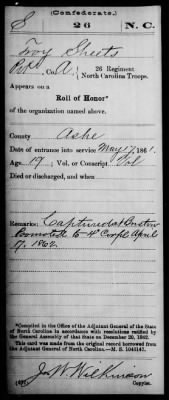 (Confederate.)
S 26 N. C.
Troy Sheets
Pvt, Co. A, 26 Regiment
North Carolina Troops.
Appears on a
Roll of Honor*
of the organization named above.
County Ashe
Date of entrance into service May 17, 1861.
Age 19; Vol. or Conscript Vol
Died or discharged, and when
Remarks: Captured at Bristow
Promoted to 4" Corp'l April
17. 1862.
*Compiled in the Office of the Adjutant General of the State
of North Carolina in accordance with resolutions ratified by
the General Assembly of that State on December 20, 1862.
This card was made from the original record borrowed from
the Adjutant General of North Carolina.—M. S. 1046147.
J. W. Wilkinson
Copyist.